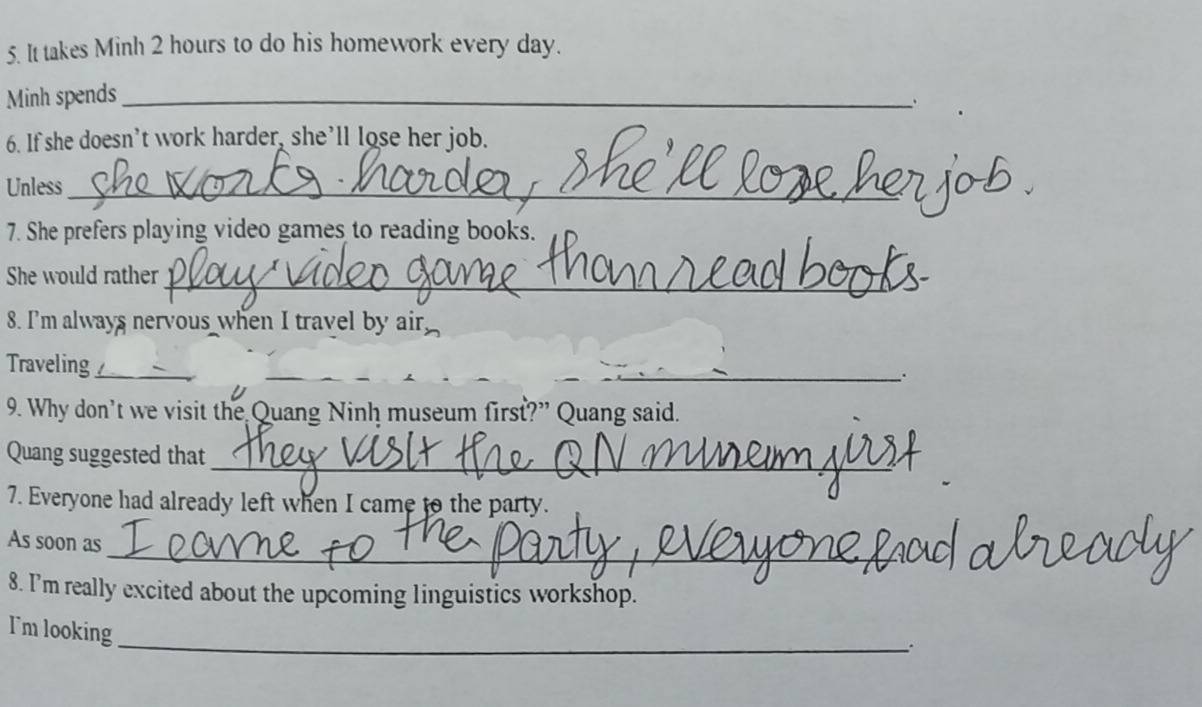 5. It takes Minh 2 hours to do his homework every day.
Minh spends ______.
6. If she doesn't work harder, she'll lose her job.
Unless she works harder, she'll lose her job.
7. She prefers playing video games to reading books.
She would rather play video game than read books.
8. I'm always nervous when I travel by air.
Traveling ______.
9. Why don't we visit the Quang Ninh museum first?" Quang said.
Quang suggested that they visit the QN museum first.
7. Everyone had already left when I came to the party.
As soon as I came to the party, everyone had already
8. I'm really excited about the upcoming linguistics workshop.
I'm looking ______.